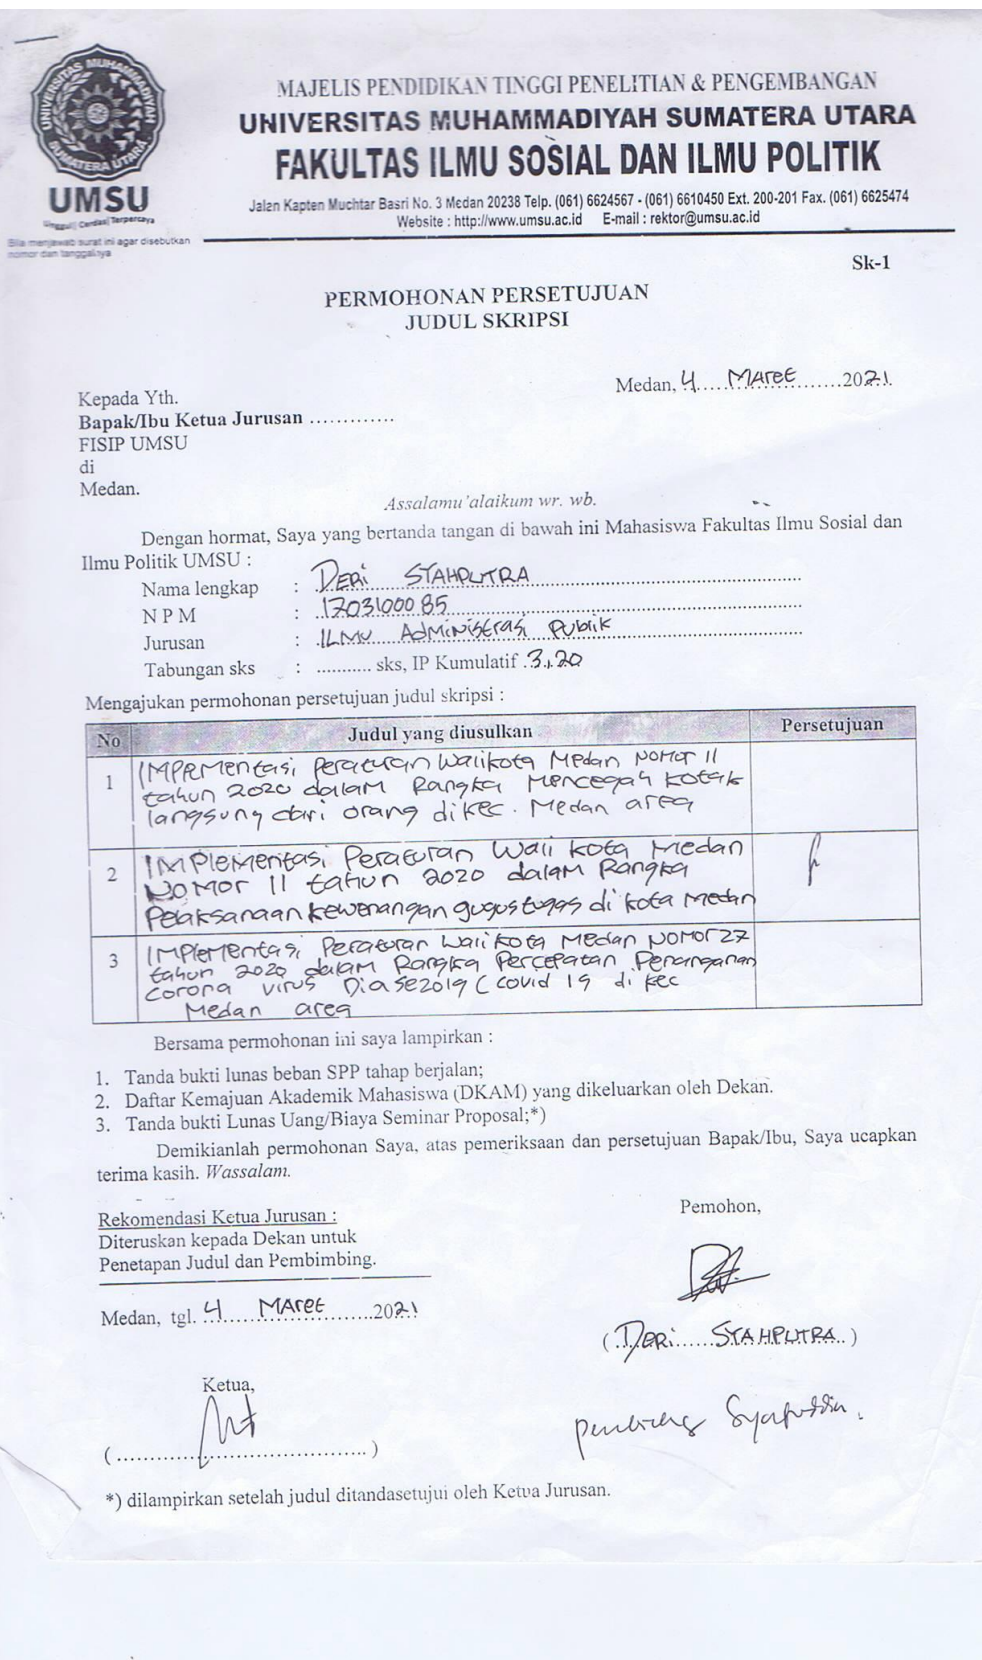 MAJELIS PENDIDIKAN TINGGI PENELITIAN & PENGEMBANGAN
UNIVERSITAS MUHAMMADIYAH SUMATERA UTARA
FAKULTAS ILMU SOSIAL DAN ILMU POLITIK
Jalan Kapten Muchtar Basri No. 3 Medan 20238 Telp. (061) 6624567 - (061) 6610450 Ext. 200-201 Fax. (061) 6625474
Website : http://www.umsu.ac.id E-mail : rektor@umsu.ac.id
UNIVERSITAS MUHAMMADIYAH
SUMATERA UTARA
UMSU
Unggul | Cerdas | Terpercaya
Bila menjawab surat ini agar disebutkan
nomor dan tanggalnya
Sk-1
PERMOHONAN PERSETUJUAN
JUDUL SKRIPSI
Medan, 4 Maret 2021.
Kepada Yth.
Bapak/Ibu Ketua Jurusan .............
FISIP UMSU
di
Medan.
Assalamu'alaikum wr. wb.
Dengan hormat, Saya yang bertanda tangan di bawah ini Mahasiswa Fakultas Ilmu Sosial dan
Ilmu Politik UMSU :
Nama lengkap : DERI SYAHPUTRA
N P M : 1703100085
Jurusan : ILMU Administrasi Publik
Tabungan sks : ........... sks, IP Kumulatif 3,20
Mengajukan permohonan persetujuan judul skripsi :
No Judul yang diusulkan Persetujuan
1 IMPlementasi Peraturan Walikota Medan Nomor 11
tahun 2020 dalam Rangka Mencegah kotak
langsung dari orang di kec. Medan area
2 IMPlementasi Peraturan Wali kota Medan
Nomor 11 tahun 2020 dalam Rangka
Pelaksanaan kewenangan gugus tugas di kota Medan
3 IMPlementasi Peraturan Wali kota Medan Nomor 27
tahun 2020 dalam Rangka Percepatan Penanganan
corona virus Diase2019 (covid 19 di kec
Medan area
Bersama permohonan ini saya lampirkan :
1. Tanda bukti lunas beban SPP tahap berjalan;
2. Daftar Kemajuan Akademik Mahasiswa (DKAM) yang dikeluarkan oleh Dekan.
3. Tanda bukti Lunas Uang/Biaya Seminar Proposal;*)
Demikianlah permohonan Saya, atas pemeriksaan dan persetujuan Bapak/Ibu, Saya ucapkan
terima kasih. Wassalam.
Rekomendasi Ketua Jurusan :
Diteruskan kepada Dekan untuk
Penetapan Judul dan Pembimbing.
Medan, tgl. 4 Maret 2021
Ketua,
(.....................................)
Pemohon,
(DERI SYAHPUTRA)
Syafruddin.
*) dilampirkan setelah judul ditandasetujui oleh Ketua Jurusan.